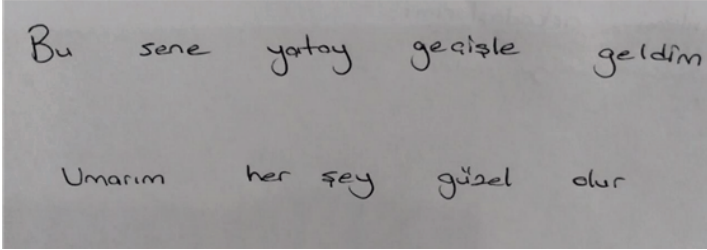 Bu sene yatay geçişle geldim
Umarım her şey güzel olur